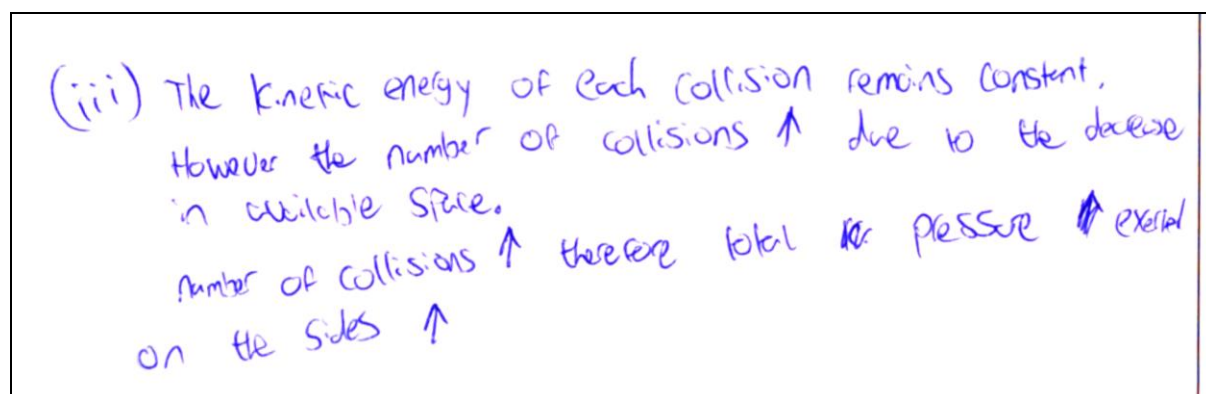 (iii) The kinetic energy of each collision remains constant.
However the number of collisions ↑ due to the decrease
in available space.
number of collisions ↑ therefore total pressure ↑ exerted
on the sides ↑